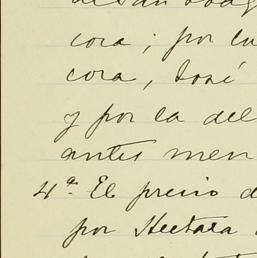 cora; por la
cora, José
y por la del
antes men
4ª. El precio d
por Hectara